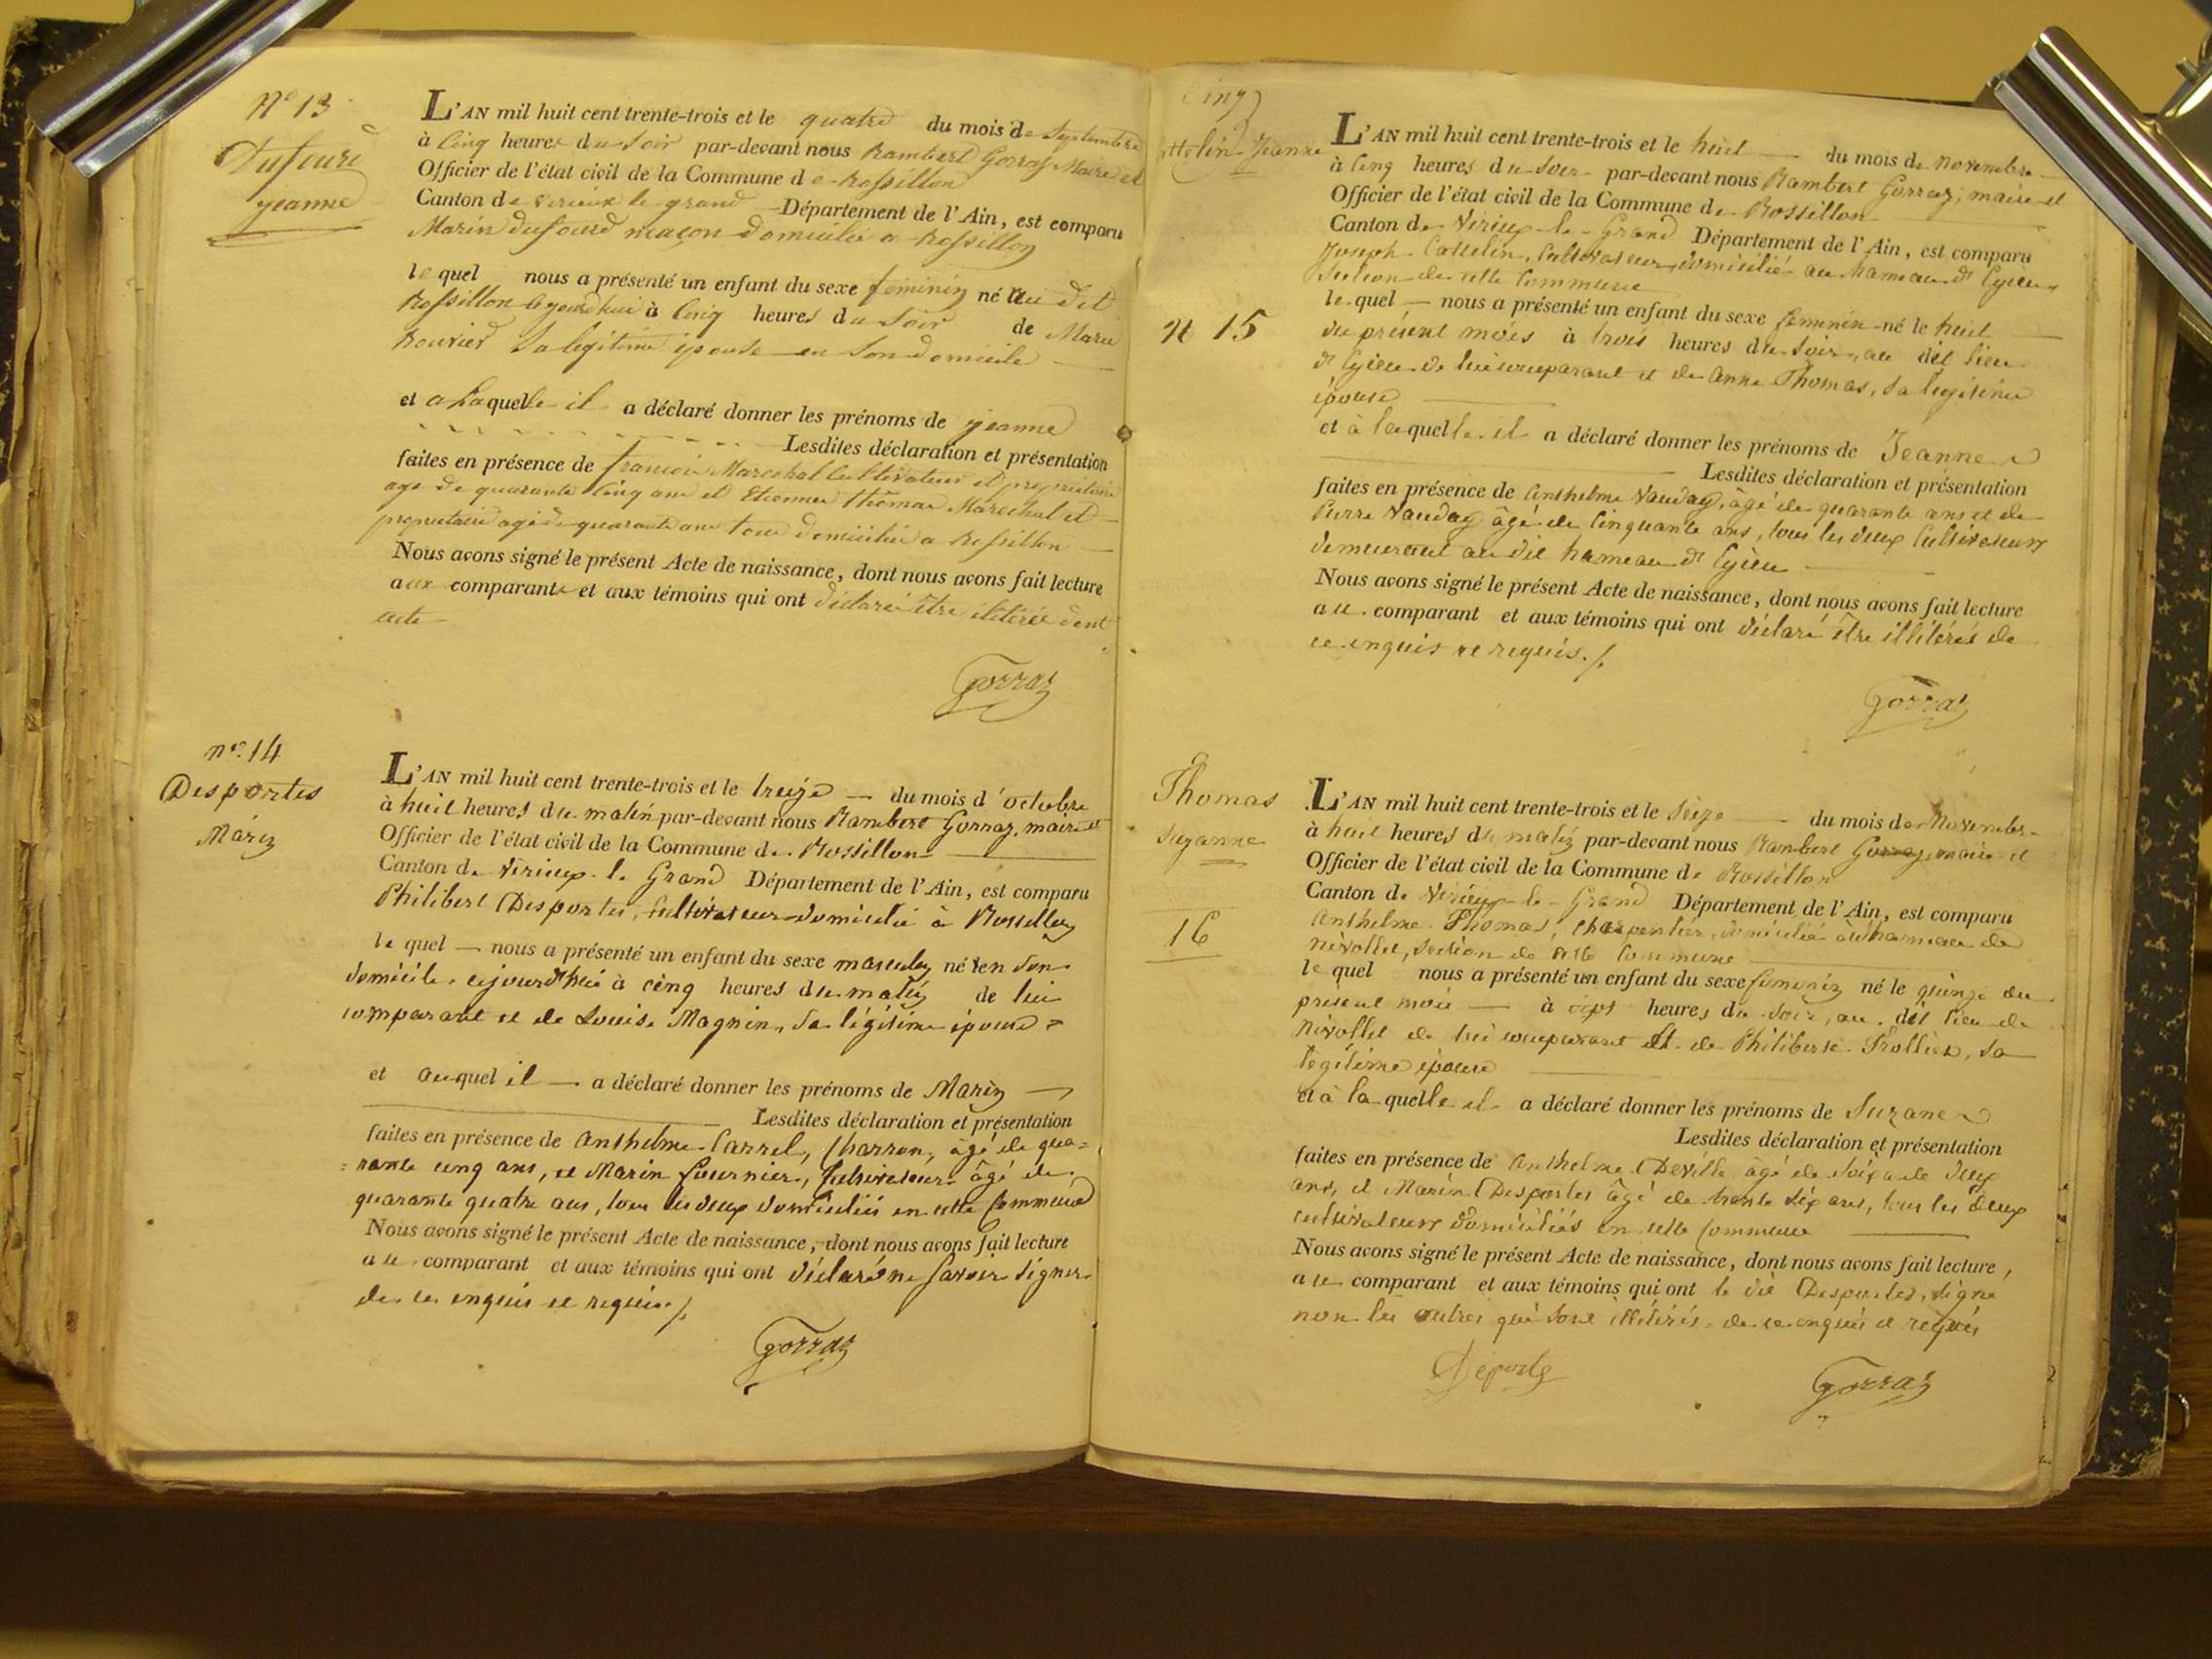 N° 13
Dufourd
jeanne
L'AN mil huit cent trente-trois et le quatre du mois de Septembre
à Cinq heures du Soir par-devant nous Rambert Gorraz Maire et
Officier de l'état civil de la Commune de Rossillon
Canton de virieux le grand Département de l'Ain, est comparu
Marin dufourd maçon domicilié a Rossillon
lequel nous a présenté un enfant du sexe féminin né au dit
Rossillon aujourd'hui à Cinq heures du Soir de Marie
Bouvier Sa legitime épouse en Son domicile
et a Laquelle il a déclaré donner les prénoms de jeanne
Lesdites déclaration et présentation
faites en présence de francois Marechal Cultivateur et propriétaire
age de quarante Cinq ans et Etienne thomas Marechal et
propriétaire agé de quarante ans tous domiciliés a Rossillon
Nous avons signé le présent Acte de naissance, dont nous avons fait lecture
aux comparants et aux témoins qui ont déclaré être ilitérés dont
acte
Gorraz
n°. 14
Desportes
Marin
L'AN mil huit cent trente-trois et le treize du mois d'octobre
à huit heures du matin par-devant nous Rambert Gorraz, maire et
Officier de l'état civil de la Commune de Rossillon
Canton de Virieux-le Grand Département de l'Ain, est comparu
Philibert Desportes, Cultivateur domicilié à Rossillon
lequel nous a présenté un enfant du sexe masculin né en son
domicile, cejourd'hui à cinq heures du matin de lui
comparant et de Louise Magnin, sa légitime épouse
et auquel il a déclaré donner les prénoms de Marin
Lesdites déclaration et présentation
faites en présence de Anthelme Carrel, Charron, âgé de qua=
=rante cinq ans, et Marin Fournier, Cultivateur âgé de
quarante quatre ans, tous les deux domiciliés en cette Commune
Nous avons signé le présent Acte de naissance, dont nous avons fait lecture
au comparant et aux témoins qui ont déclaré ne savoir signer
de ce enquis et requis./.
Gorraz
Cinq
ttelin Jeanne
N 15
L'AN mil huit cent trente-trois et le huit du mois de Novembre
à Cinq heures du soir par-devant nous Rambert Gorraz, maire et
Officier de l'état civil de la Commune de Rossillon
Canton de Virieux-le-Grand Département de l'Ain, est comparu
Joseph Cottelin, Cultivateur domicilié au hameau d'Egieu
Section de cette Commune
lequel nous a présenté un enfant du sexe feminin né le huit
du présent mois à trois heures du soir, au dit lieu
d'Egieu de lui comparant et de Anne Thomas, sa legitime
épouse
et à laquelle il a déclaré donner les prénoms de Jeanne
Lesdites déclaration et présentation
faites en présence de Anthelme Vauday, âgé de quarante ans et de
Pierre Vauday âgé de Cinquante ans, tous les deux Cultivateurs
demeurant au dit hameau d'Egieu
Nous avons signé le présent Acte de naissance, dont nous avons fait lecture
au comparant et aux témoins qui ont déclaré être illitérés de
ce enquis et requis./.
Gorraz
Thomas
Suzanne
16
L'AN mil huit cent trente-trois et le Seize du mois de Novembre
à huit heures du matin par-devant nous Rambert Gorraz, maire et
Officier de l'état civil de la Commune de Rossillon
Canton de Virieux-le-Grand Département de l'Ain, est comparu
Anthelme Thomas, Charpentier, domicilié au hameau de
Nivollet, section de cette Commune
lequel nous a présenté un enfant du sexe feminin né le quinze du
présent mois à sept heures du soir, au dit lieu de
Nivollet de lui comparant et de Philiberte Trollier, sa
légitime épouse
et à laquelle il a déclaré donner les prénoms de Suzane
Lesdites déclaration et présentation
faites en présence de Anthelme Deville âgé de soixante deux
ans, et Marin Desportes âgé de trente six ans, tous les deux
cultivateurs domiciliés en cette Commune
Nous avons signé le présent Acte de naissance, dont nous avons fait lecture,
au comparant et aux témoins qui ont le dit Desportes, signé
non les autres qui sont illitérés de ce enquis et requis
Deporte
Gorraz